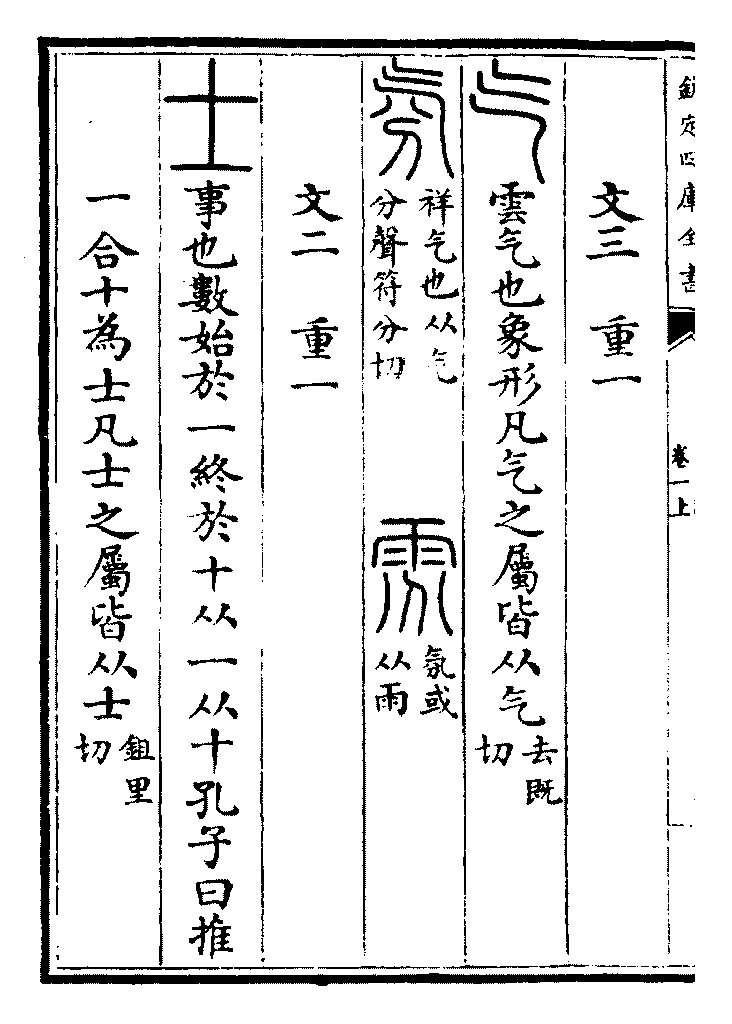 欽定四庫全書
卷一上
文三　重一
气雲气也象形凡气之屬皆从气去既切
氛祥气也从气分聲符分切　雰氛或从雨
文二　重一
士事也數始於一終於十从一从十孔子曰推
一合十為士凡士之屬皆从士鉏里切